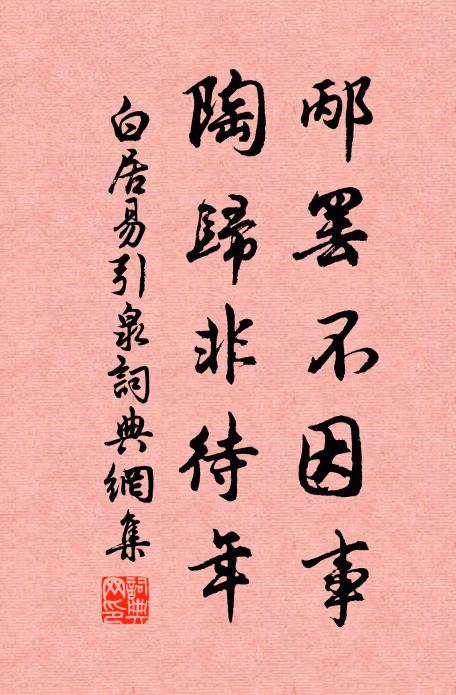 邴罷不因事
陶歸非待年
白居易引泉詞典網集
詞典網印